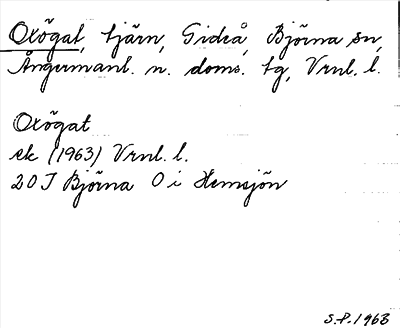 Oxögat, tjärn, Gideå, Björna sn,
Ångermanl. n. doms. tg, Vrnl. l.
Oxögat
ek (1963) Vrnl. l.
20 J Björna O i Hemsjön
S.P. 1963